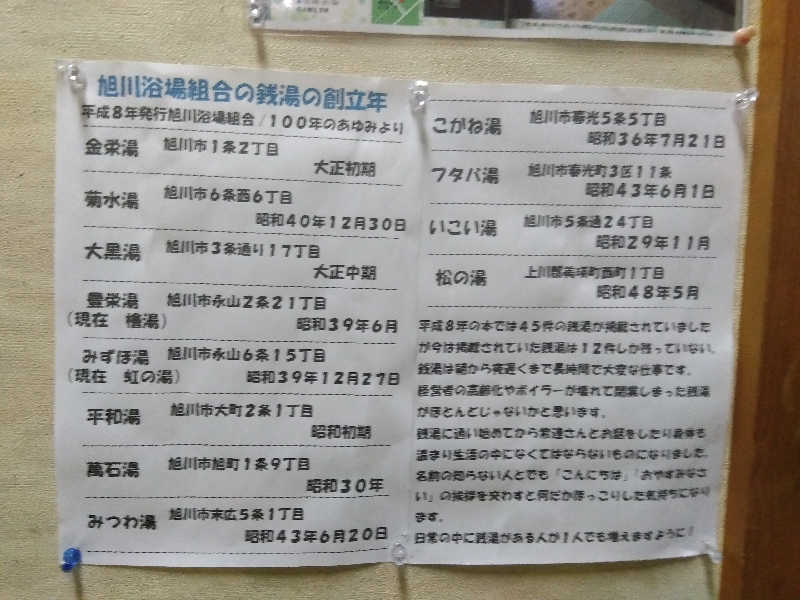 旭川浴場組合の銭湯の創立年
平成8年発行旭川浴場組合/100年のあゆみより
金栄湯 旭川市1条2丁目
大正初期
菊水湯 旭川市6条西6丁目
昭和40年12月30日
大黒湯 旭川市3条通り17丁目
大正中期
豊栄湯 旭川市永山2条21丁目
(現在 檜湯) 昭和39年6月
みずほ湯 旭川市永山6条15丁目
(現在 虹の湯) 昭和39年12月27日
平和湯 旭川市大町2条1丁目
昭和初期
萬石湯 旭川市旭町1条9丁目
昭和30年
みつわ湯 旭川市末広5条1丁目
昭和43年6月20日
こがね湯 旭川市春光5条5丁目
昭和36年7月21日
フタバ湯 旭川市春光町3区11条
昭和43年6月1日
いこい湯 旭川市5条通24丁目
昭和29年11月
松の湯 上川郡美瑛町西町1丁目
昭和48年5月
平成8年の本では45件の銭湯が掲載されていました
が今は掲載されていた銭湯は12件しか残っていない。
銭湯は朝から夜遅くまで長時間で大変な仕事です。
経営者の高齢化やボイラーが壊れて閉業しまった銭湯
がほとんどじゃないかと思います。
銭湯に通い始めてから常連さんとお話をしたり身体も
温まり生活の中になくてはならないものになりました。
名前の知らない人とでも「こんにちは」「おやすみなさ
い」の挨拶を交わすと何だかほっこりした気持ちになり
ます。
日常の中に銭湯がある人が1人でも増えますように!